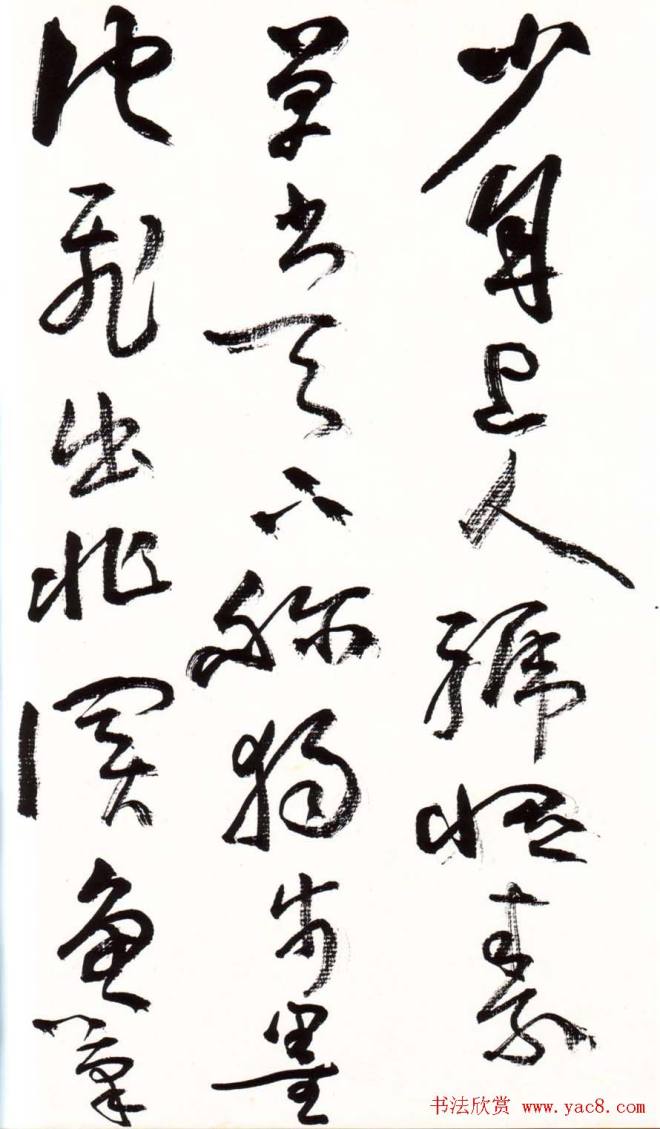 少年上人號懷素
草書天下稱獨步墨
池飛出北溟魚筆
书法欣赏 www.yac8.com